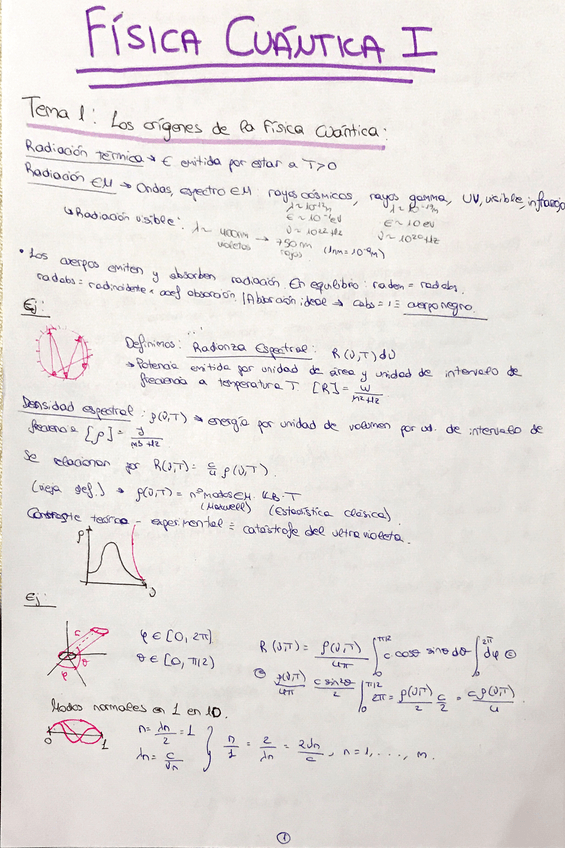 FÍSICA CUÁNTICA I
Tema 1: Los orígenes de la Física Cuántica:
Radiación térmica → E emitida por estar a T>0
Radiación EM → Ondas, espectro EM: rayos cósmicos, rayos gamma, UV, visible, infrarrojo
λ~10⁻¹²m
E~10⁻⁷eV
ν~10²²Hz
E~10eV
ν~10²⁰Hz
↳ Radiación visible: λ~400nm violetas → 750nm rojos (1nm=10⁻⁹m)
• Los cuerpos emiten y absorben radiación. En equilibrio: radem = radabs.
radabs = radincidente × coef absorción / Absorción ideal → cabs = 1 ≡ cuerpo negro.
Ej:
Definimos: Radianza Espectral: R(ν,T)dν
→ Potencia emitida por unidad de área y unidad de intervalo de
frecuencia a temperatura T [R] = W/m²Hz
Densidad espectral: ρ(ν,T) → energía por unidad de volumen por ud. de intervalo de
frecuencia [ρ] = J/m³Hz
Se relacionan por R(ν,T) = c/4 ρ(ν,T).
(vieja def.) → ρ(ν,T) = nº modos EM · KB·T
(Maxwell) (Estadística clásica).
Contraste teórico - experimental ≡ catástrofe del ultravioleta.
ρ
ν
Ej:
c
θ
φ
φ ∈ [0, 2π]
θ ∈ [0, π/2]
R(ν,T) = ρ(ν,T)/4π ∫₀^π/2 c cosθ sinθ dθ ∫₀^2π dφ =
= ρ(ν,T)/4π c sin²θ/2 |₀^π/2 2π = ρ(ν,T)/2 c/2 = cρ(ν,T)/4
Modos normales en 1 en 1D.
0
1
n = λn/2 = 1
λn = c/νn
} n/1 = 2/λn = 2νn/c, n=1, ..., m.
1